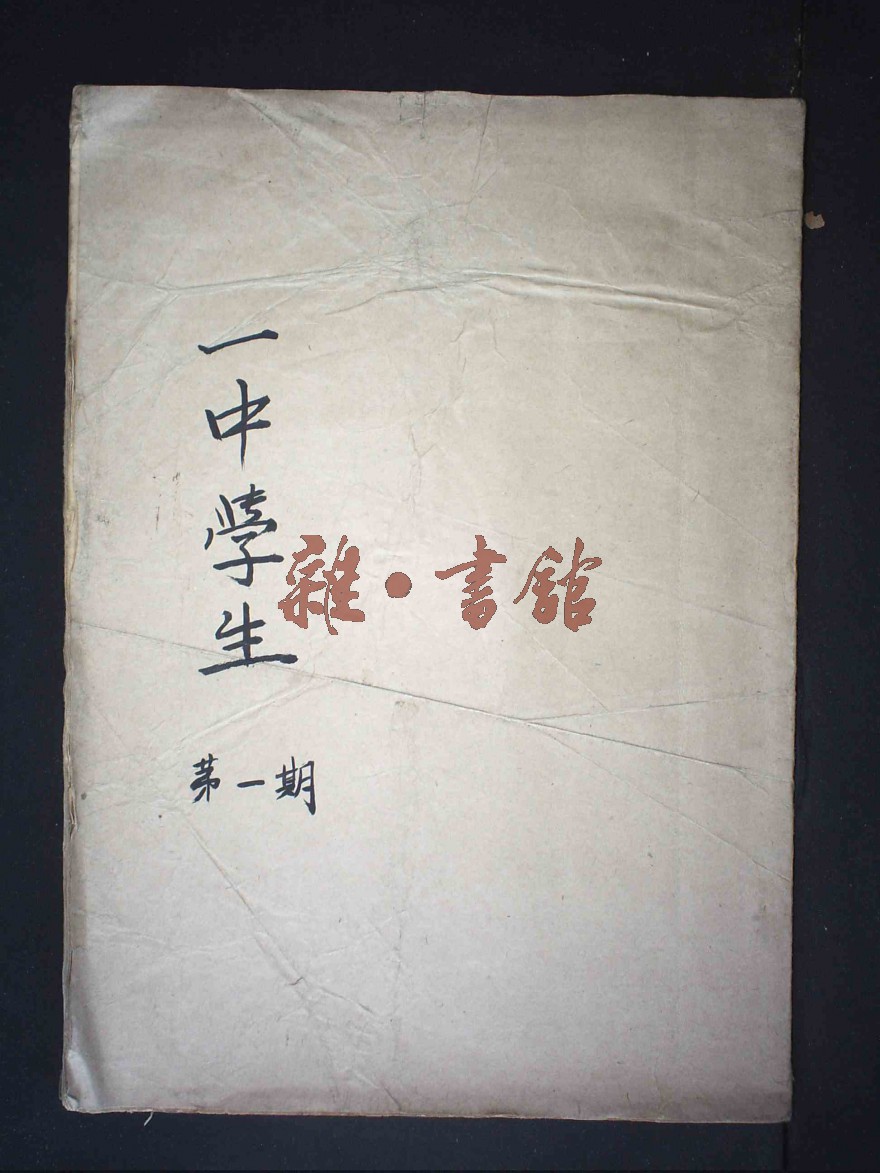 一中學生
雜·書館
第一期